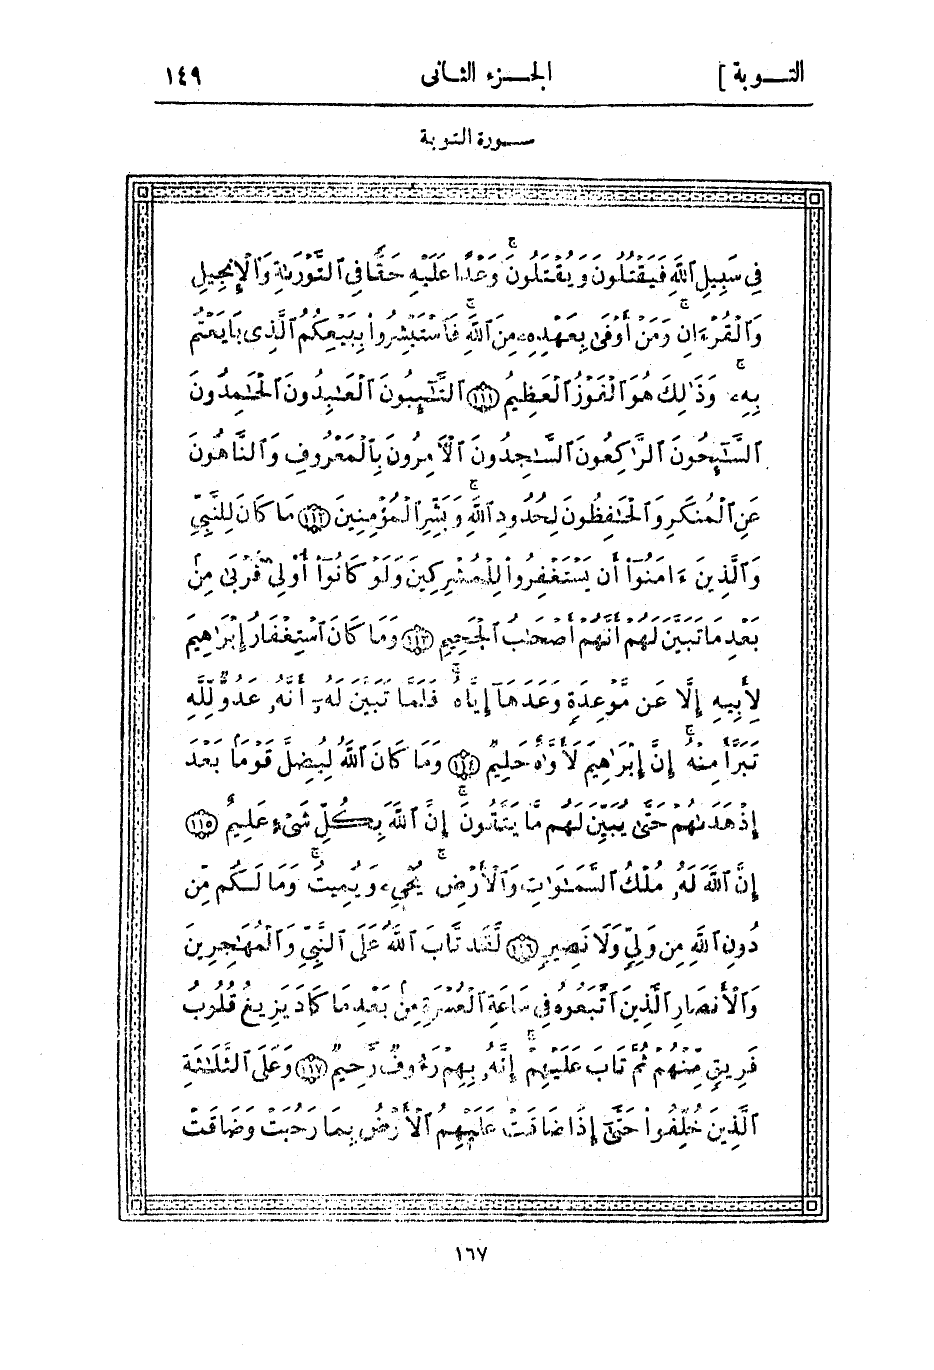 التـــوبة ]
الجـــزء الثـانى
١٤٩
ســورة التوبة
فِي سَبِيلِ ٱللَّهِ فَيَقْتُلُونَ وَيُقْتَلُونَ ۖ وَعْدًا عَلَيْهِ حَقًّا فِي ٱلتَّوْرَىٰةِ وَٱلْإِنجِيلِ
وَٱلْقُرْءَانِ ۚ وَمَنْ أَوْفَىٰ بِعَهْدِهِۦ مِنَ ٱللَّهِ ۚ فَٱسْتَبْشِرُوا۟ بِبَيْعِكُمُ ٱلَّذِى بَايَعْتُم
بِهِۦ ۚ وَذَٰلِكَ هُوَ ٱلْفَوْزُ ٱلْعَظِيمُ ١١١ ٱلتَّـٰٓئِبُونَ ٱلْعَـٰبِدُونَ ٱلْحَـٰمِدُونَ
ٱلسَّـٰٓئِحُونَ ٱلرَّٰكِعُونَ ٱلسَّـٰجِدُونَ ٱلْـَٔامِرُونَ بِٱلْمَعْرُوفِ وَٱلنَّاهُونَ
عَنِ ٱلْمُنكَرِ وَٱلْحَـٰفِظُونَ لِحُدُودِ ٱللَّهِ ۗ وَبَشِّرِ ٱلْمُؤْمِنِينَ ١١٢ مَا كَانَ لِلنَّبِيِّ
وَٱلَّذِينَ ءَامَنُوٓا۟ أَن يَسْتَغْفِرُوا۟ لِلْمُشْرِكِينَ وَلَوْ كَانُوٓا۟ أُو۟لِي قُرْبَىٰ مِنۢ
بَعْدِ مَا تَبَيَّنَ لَهُمْ أَنَّهُمْ أَصْحَـٰبُ ٱلْجَحِيمِ ١١٣ وَمَا كَانَ ٱسْتِغْفَارُ إِبْرَٰهِيمَ
لِأَبِيهِ إِلَّا عَن مَّوْعِدَةٍ وَعَدَهَآ إِيَّاهُ ۚ فَلَمَّا تَبَيَّنَ لَهُۥٓ أَنَّهُۥ عَدُوٌّ لِّلَّهِ
تَبَرَّأَ مِنْهُ ۚ إِنَّ إِبْرَٰهِيمَ لَأَوَّٰهٌ حَلِيمٌ ١١٤ وَمَا كَانَ ٱللَّهُ لِيُضِلَّ قَوْمًۢا بَعْدَ
إِذْ هَدَىٰهُمْ حَتَّىٰ يُبَيِّنَ لَهُم مَّا يَتَّقُونَ ۚ إِنَّ ٱللَّهَ بِكُلِّ شَىْءٍ عَلِيمٌ ١١٥
إِنَّ ٱللَّهَ لَهُۥ مُلْكُ ٱلسَّمَـٰوَٰتِ وَٱلْأَرْضِ ۖ يُحْيِۦ وَيُمِيتُ ۚ وَمَا لَكُم مِّن
دُونِ ٱللَّهِ مِن وَلِيٍّ وَلَا نَصِيرٍ ١١٦ لَّقَد تَّابَ ٱللَّهُ عَلَى ٱلنَّبِيِّ وَٱلْمُهَـٰجِرِينَ
وَٱلْأَنصَارِ ٱلَّذِينَ ٱتَّبَعُوهُ فِي سَاعَةِ ٱلْعُسْرَةِ مِنۢ بَعْدِ مَا كَادَ يَزِيغُ قُلُوبُ
فَرِيقٍ مِّنْهُمْ ثُمَّ تَابَ عَلَيْهِمْ ۚ إِنَّهُۥ بِهِمْ رَءُوفٌ رَّحِيمٌ ١١٧ وَعَلَى ٱلثَّلَـٰثَةِ
ٱلَّذِينَ خُلِّفُوا۟ حَتَّىٰٓ إِذَا ضَاقَتْ عَلَيْهِمُ ٱلْأَرْضُ بِمَا رَحُبَتْ وَضَاقَتْ
١٦٧